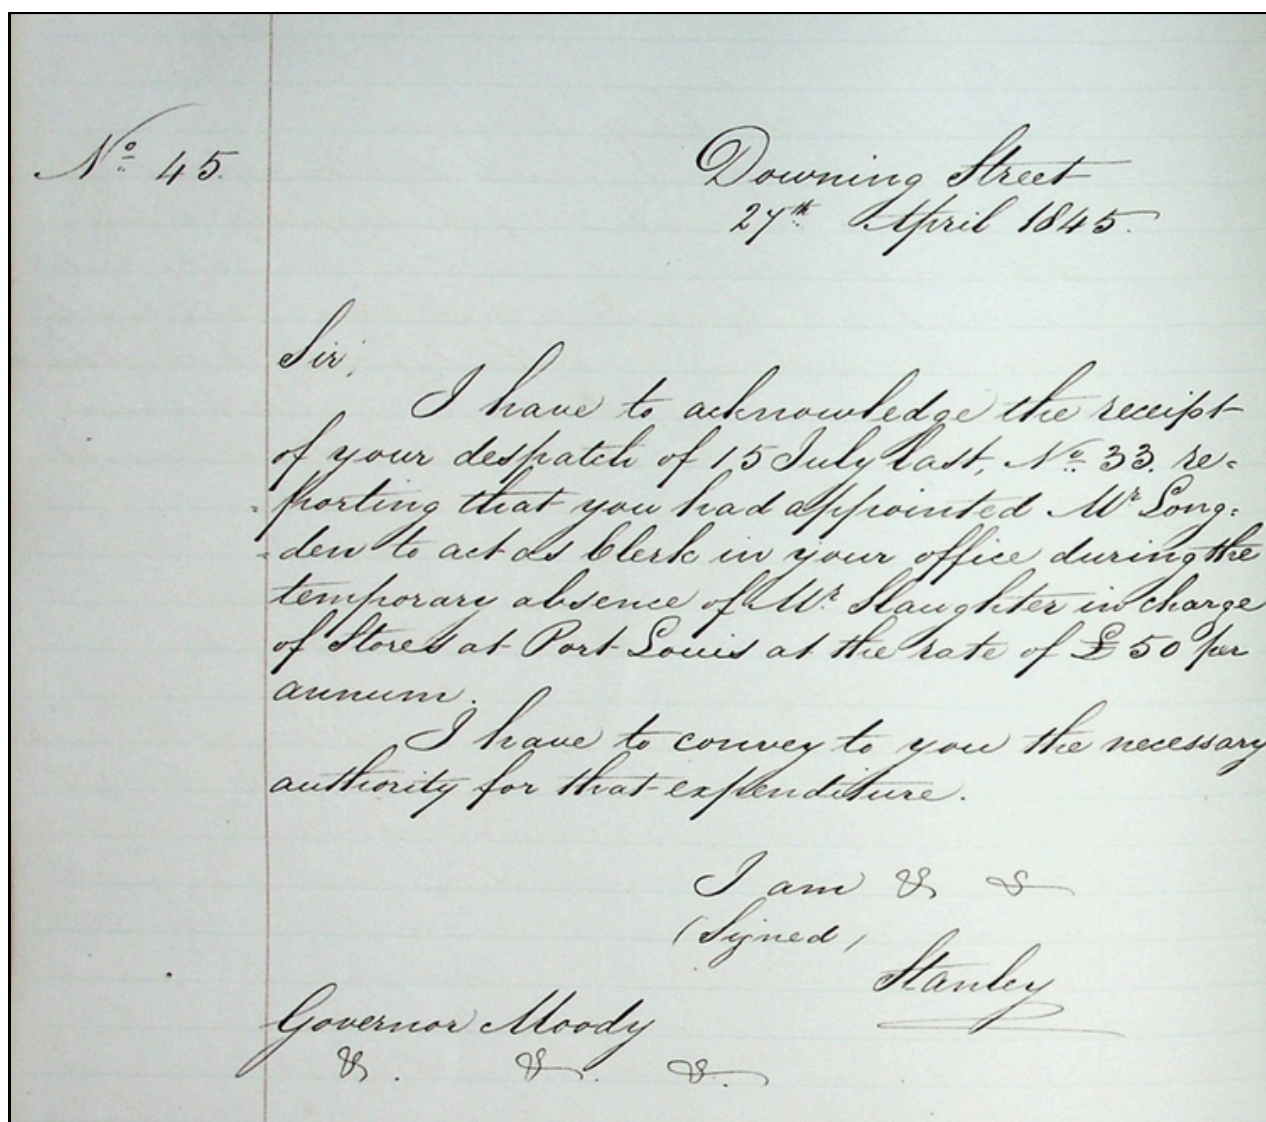 No 45.
Downing Street
27th April 1845.
Sir,
I have to acknowledge the receipt
of your despatch of 15 July last, No 33. re=
=porting that you had appointed Mr Long=
=den to act as Clerk in your office during the
temporary absence of Mr Slaughter in charge
of Stores at Port Louis at the rate of £50 per
annum.
I have to convey to you the necessary
authority for that expenditure.
I am & &
(Signed)
Stanley
Governor Moody
&. &. &.